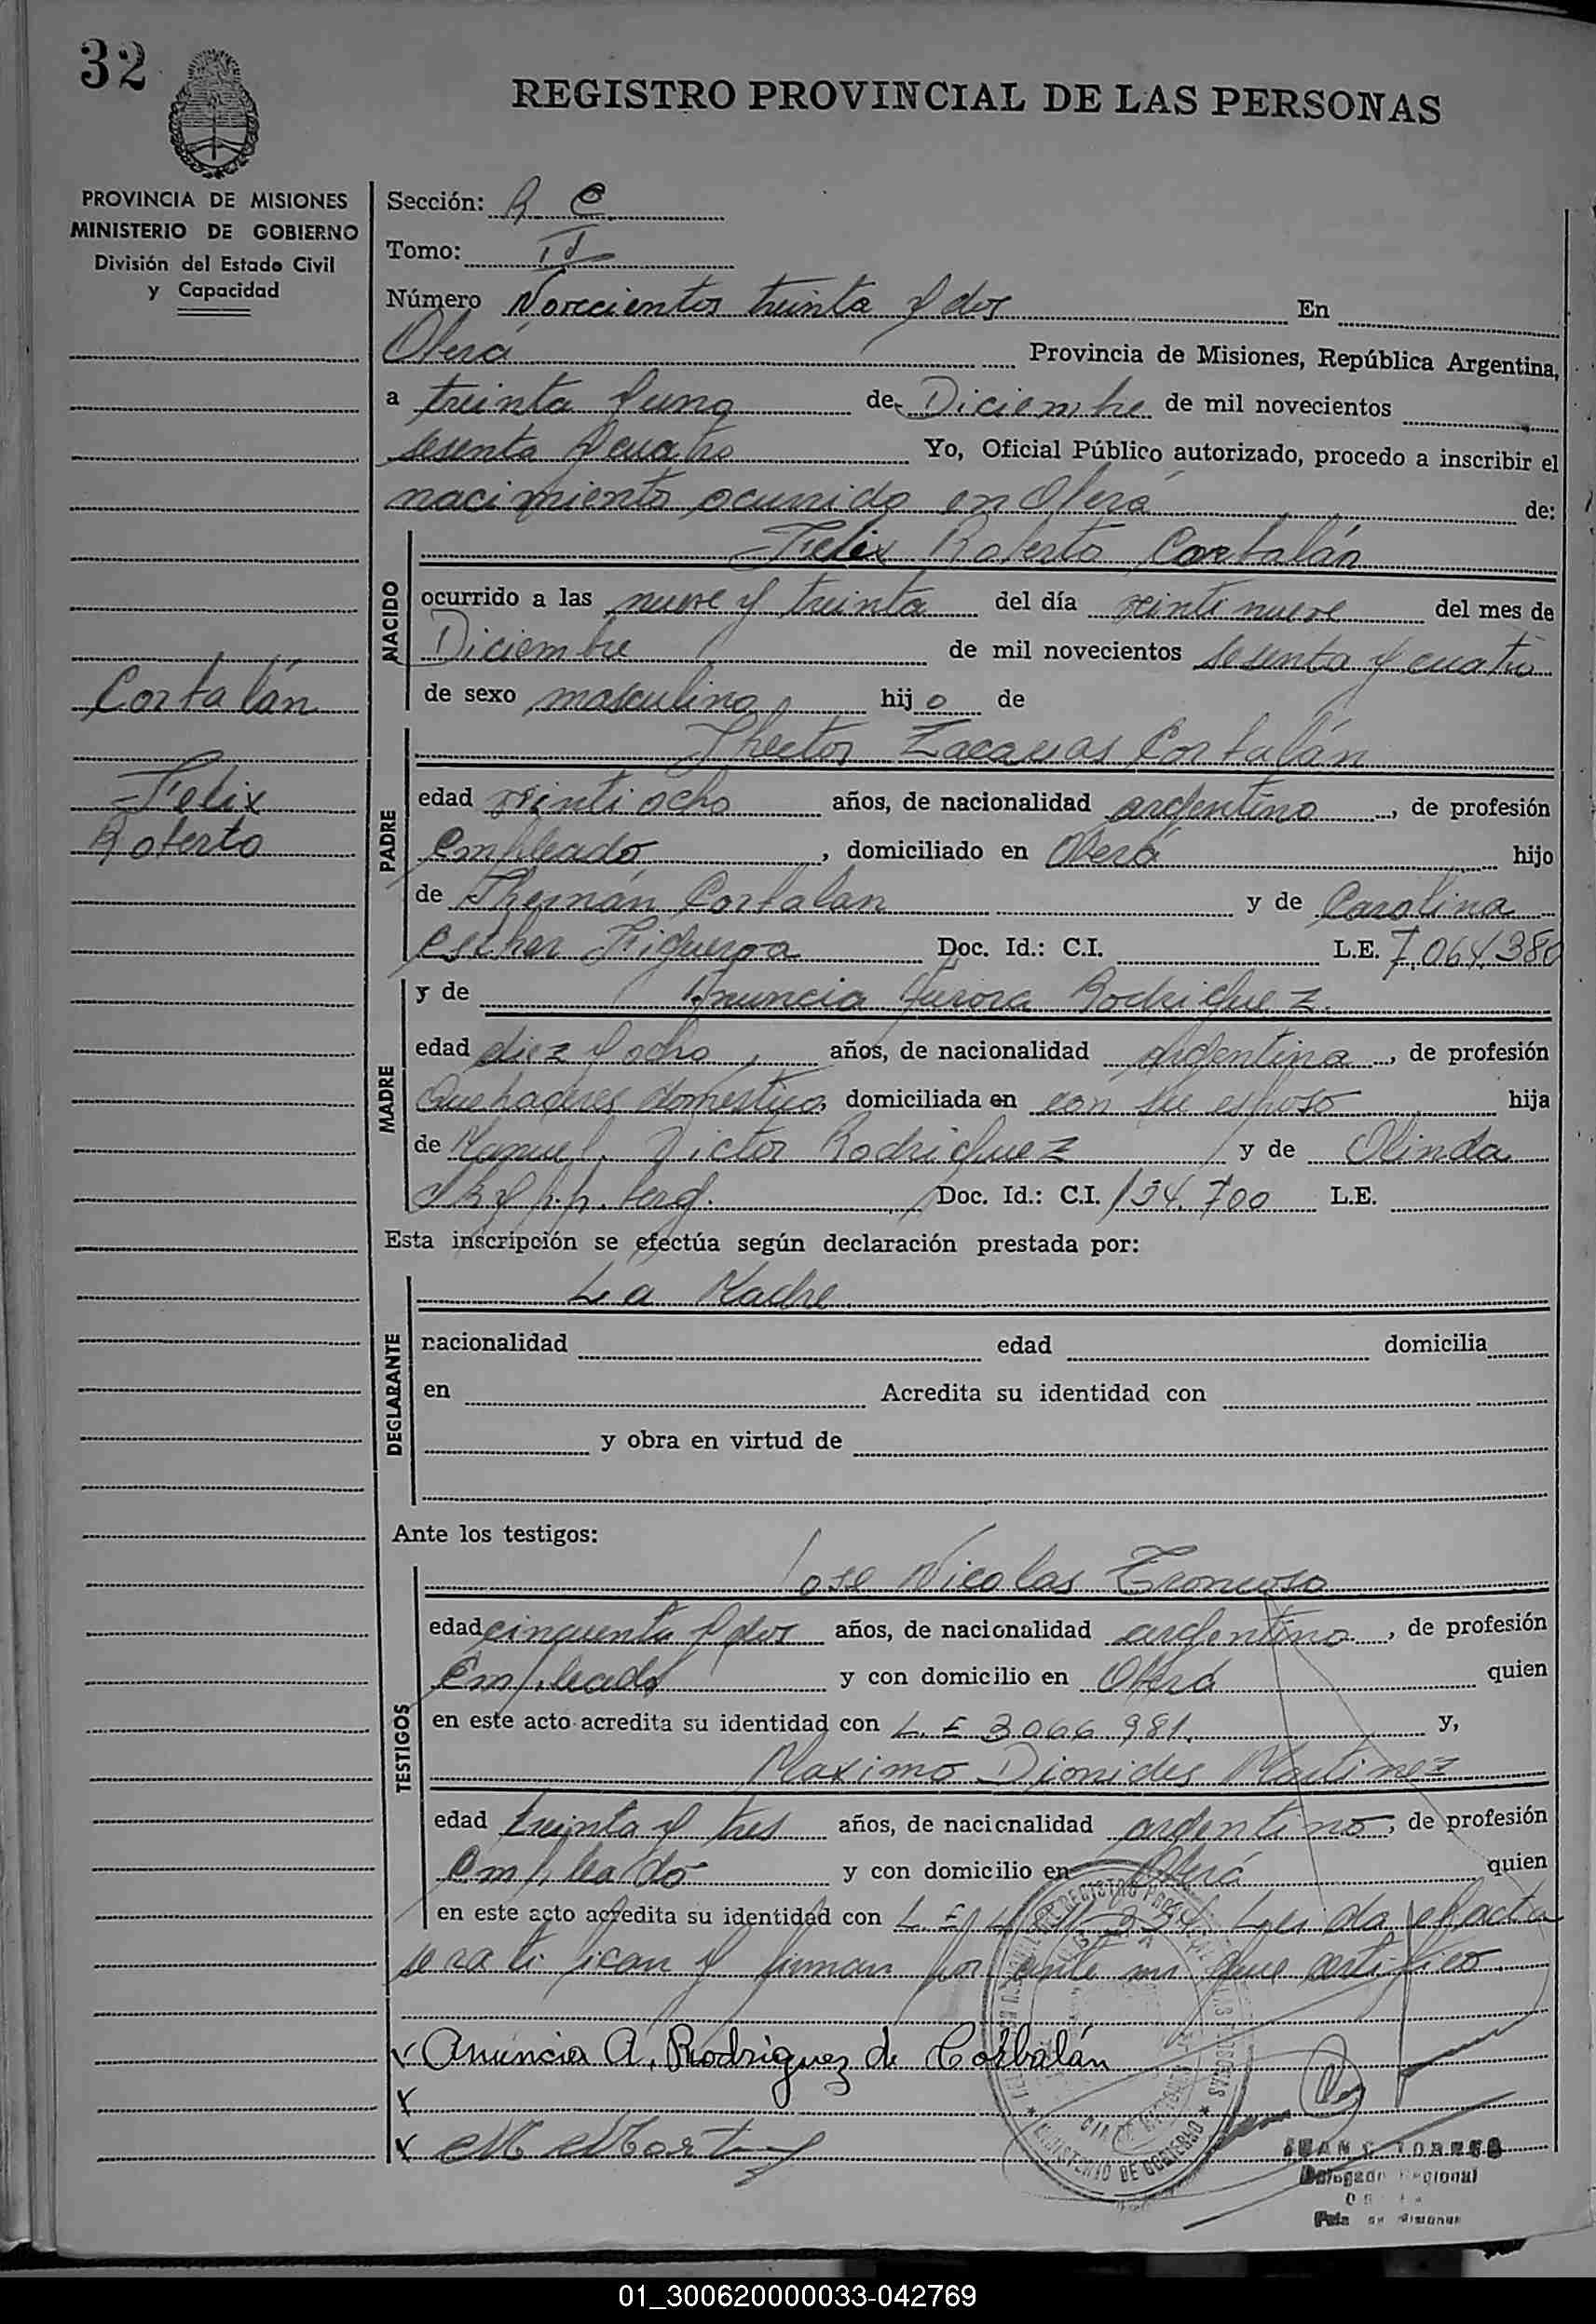 32
REGISTRO PROVINCIAL DE LAS PERSONAS
PROVINCIA DE MISIONES
MINISTERIO DE GOBIERNO
División del Estado Civil
y Capacidad
Sección: R C
Tomo:
Número treinta y dos En
Oberá Provincia de Misiones, República Argentina,
a treinta y uno de Diciembre de mil novecientos
sesenta y cuatro Yo, Oficial Público autorizado, procedo a inscribir el
nacimiento ocurrido en Oberá de:
Felix Roberto Corbalán
NACIDO
ocurrido a las nueve y treinta del día veinti nueve del mes de
Diciembre de mil novecientos sesenta y cuatro
de sexo masculino hijo de
Corbalán
Felix
Roberto
PADRE
Hector Zacarias Corbalán
edad veinti ocho años, de nacionalidad argentino, de profesión
Empleado, domiciliado en Oberá hijo
de Hernán Corbalan y de Carolina
Esther Figueroa Doc. Id.: C.I. L.E. 7.064.380
MADRE
y de Anuncia Aurora Rodriguez.
edad diez y ocho, años, de nacionalidad argentina, de profesión
Quehaceres domésticos, domiciliada en con su esposo hija
de Manuel Victor Rodriguez y de Olinda
Doc. Id.: C.I. 134.700 L.E.
Esta inscripción se efectúa según declaración prestada por:
DECLARANTE
La Madre
nacionalidad edad domicilia
en Acredita su identidad con
y obra en virtud de
Ante los testigos:
TESTIGOS
Jose Nicolas Troncoso
edad cincuenta y dos años, de nacionalidad argentino, de profesión
Empleado y con domicilio en Oberá quien
en este acto acredita su identidad con L. E 3066981. y,
Maximo Dionides Martinez
edad treinta y tres años, de nacionalidad argentino, de profesión
Empleado y con domicilio en Oberá quien
en este acto acredita su identidad con L. E Leida el acta
se ratifican y firman por ante mi que certifico.
Anuncia A. Rodriguez de Corbalán
MINISTERIO DE GOBIERNO
JUAN C TORRES
Delegado Regional
01_300620000033-042769